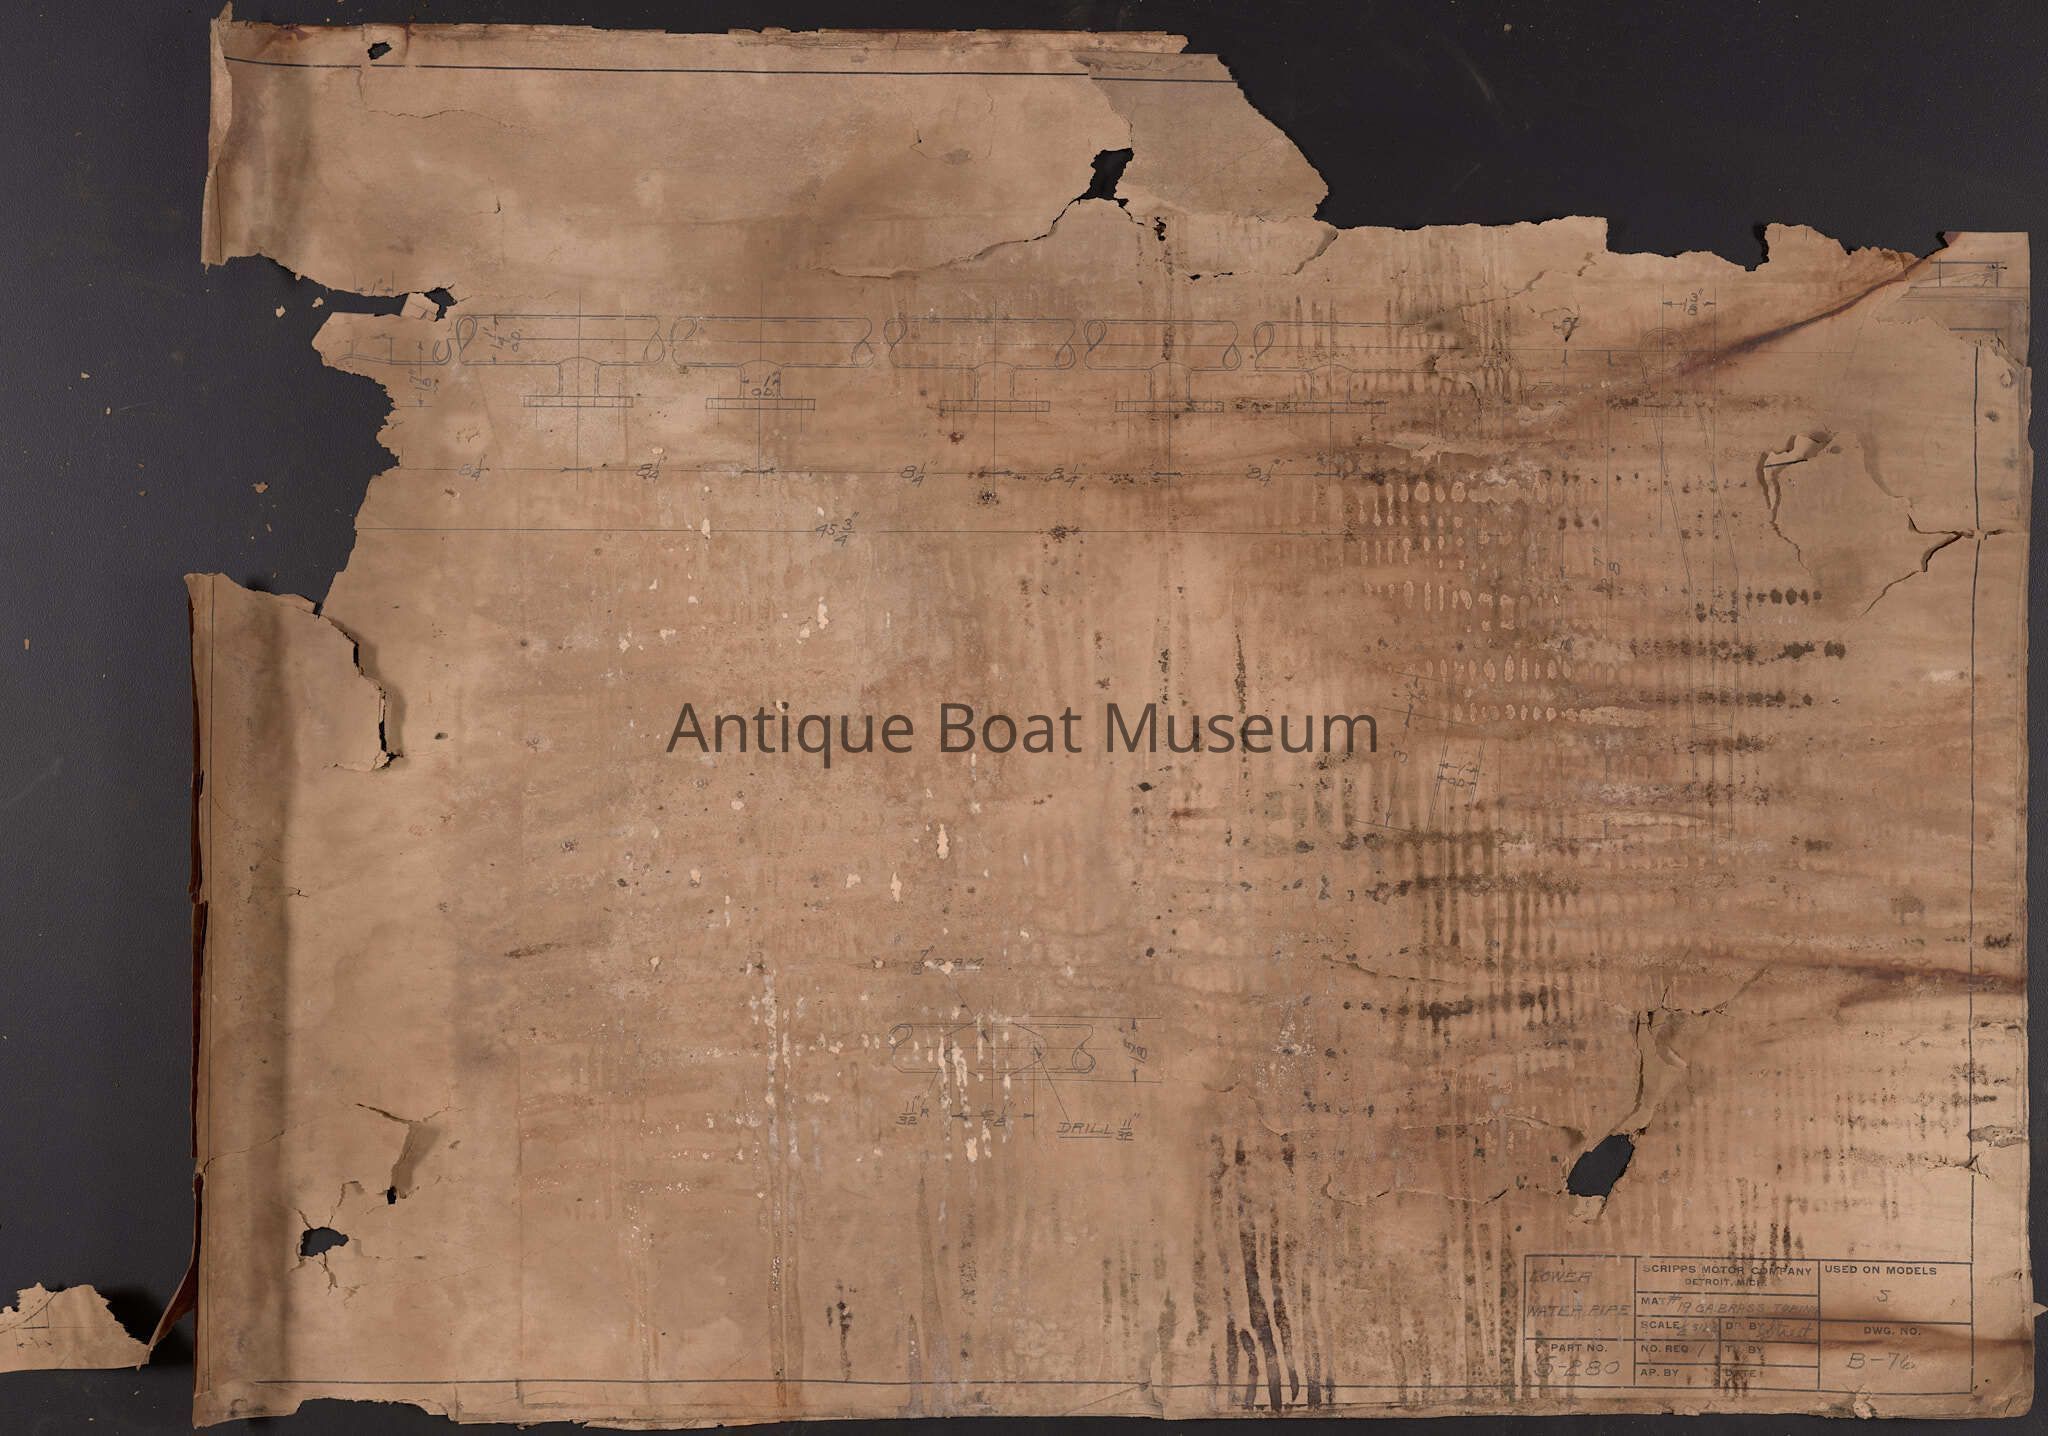 1"
1 7/8"
1 1/4"
O.D.
1"
O.D.
1 3/8"
8 1/4
8 1/4"
8 1/4"
8 1/4"
8 1/4"
45 3/4"
7/8"
3
1"
O.D.
Antique Boat Museum
7/8 DIAM.
1 5/8"
11/32" R
DRILL 11/32"
LOWER
WATER PIPE
PART NO.
S-280
SCRIPPS MOTOR COMPANY
DETROIT, MICH.
MAT# 19 GA. BRASS TUBING
SCALE
DR. BY
NO. REQ. 1
TR. BY
AP. BY
DATE
USED ON MODELS
S
DWG. NO.
B-76